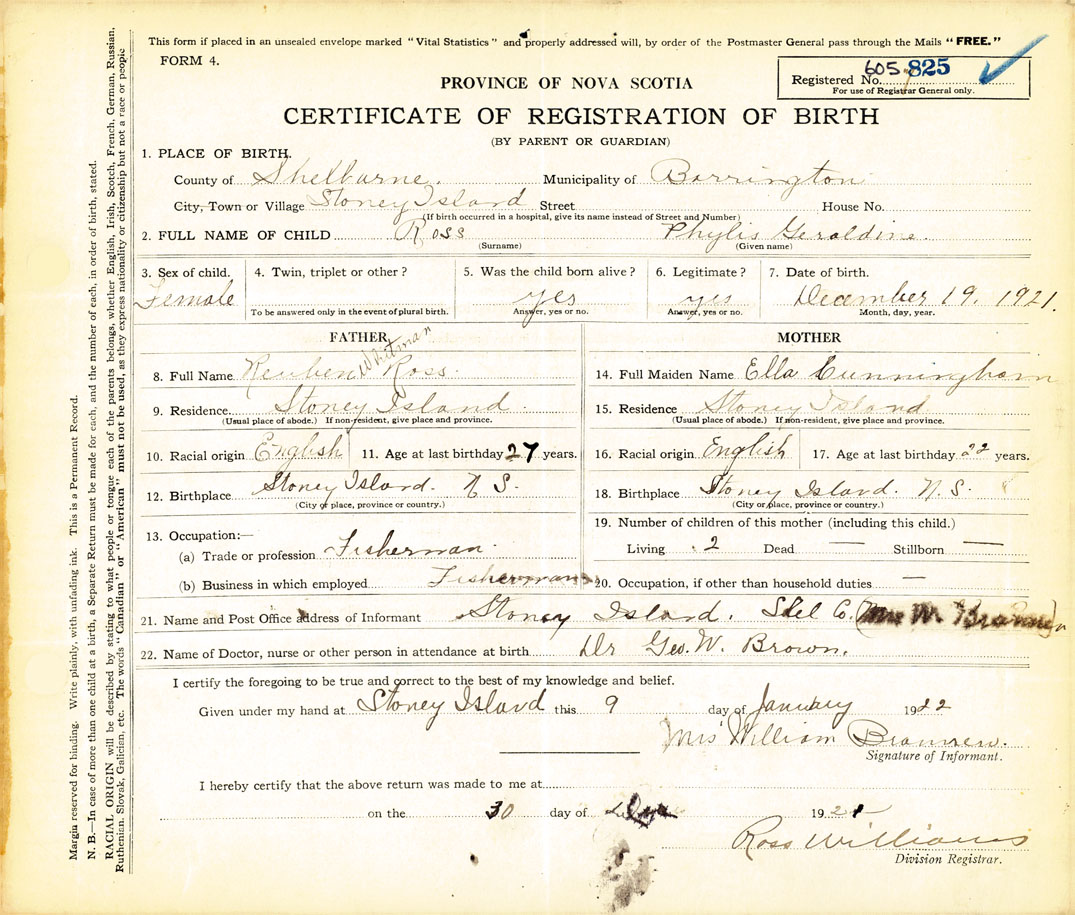 This form if placed in an unsealed envelope marked "Vital Statistics" and properly addressed will, by order of the Postmaster General pass through the Mails "FREE."
FORM 4.
Registered No. 605 825
For use of Registrar General only.
PROVINCE OF NOVA SCOTIA
CERTIFICATE OF REGISTRATION OF BIRTH
(BY PARENT OR GUARDIAN)
1. PLACE OF BIRTH.
County of Shelburne. Municipality of Barrington
City, Town or Village Stoney Island Street House No.
(If birth occurred in a hospital, give its name instead of Street and Number)
2. FULL NAME OF CHILD Ross Phylis Geraldine.
(Surname) (Given name)
3. Sex of child. 4. Twin, triplet or other? 5. Was the child born alive? 6. Legitimate? 7. Date of birth.
Female yes yes December 19. 1921.
To be answered only in the event of plural birth. Answer, yes or no. Answer, yes or no. Month, day, year.
FATHER MOTHER
8. Full Name Reuben Whitman Ross. 14. Full Maiden Name Ella Cunningham
9. Residence Stoney Island. 15. Residence Stoney Island
(Usual place of abode.) If non-resident, give place and province. (Usual place of abode.) If non-resident, give place and province.
10. Racial origin English 11. Age at last birthday 27 years. 16. Racial origin English 17. Age at last birthday 22 years.
12. Birthplace Stoney Island. N S. 18. Birthplace Stoney Island. N. S.
(City or place, province or country.) (City or place, province or country.)
13. Occupation:— 19. Number of children of this mother (including this child.)
(a) Trade or profession Fisherman. Living 2 Dead — Stillborn —
(b) Business in which employed Fisherman 20. Occupation, if other than household duties —
21. Name and Post Office address of Informant Stoney Island. Shel Co. (Mrs W.
22. Name of Doctor, nurse or other person in attendance at birth Dr Geo. W. Brown.
I certify the foregoing to be true and correct to the best of my knowledge and belief.
Given under my hand at Stoney Island this 9 day of January 1922
Mrs William
Signature of Informant.
I hereby certify that the above return was made to me at
on the 30 day of 1921
Ross Williams
Division Registrar.
Margin reserved for binding. Write plainly, with unfading ink. This is a Permanent Record.
N. B.—In case of more than one child at a birth, a Separate Return must be made for each, and the number of each, in order of birth, stated.
RACIAL ORIGIN will be described by stating to what people or tongue each of the parents belongs, whether English, Irish, Scotch, French, German, Russian,
Ruthenian, Slovak, Galician, etc. The words "Canadian" or "American" must not be used, as they express nationality or citizenship but not a race or people